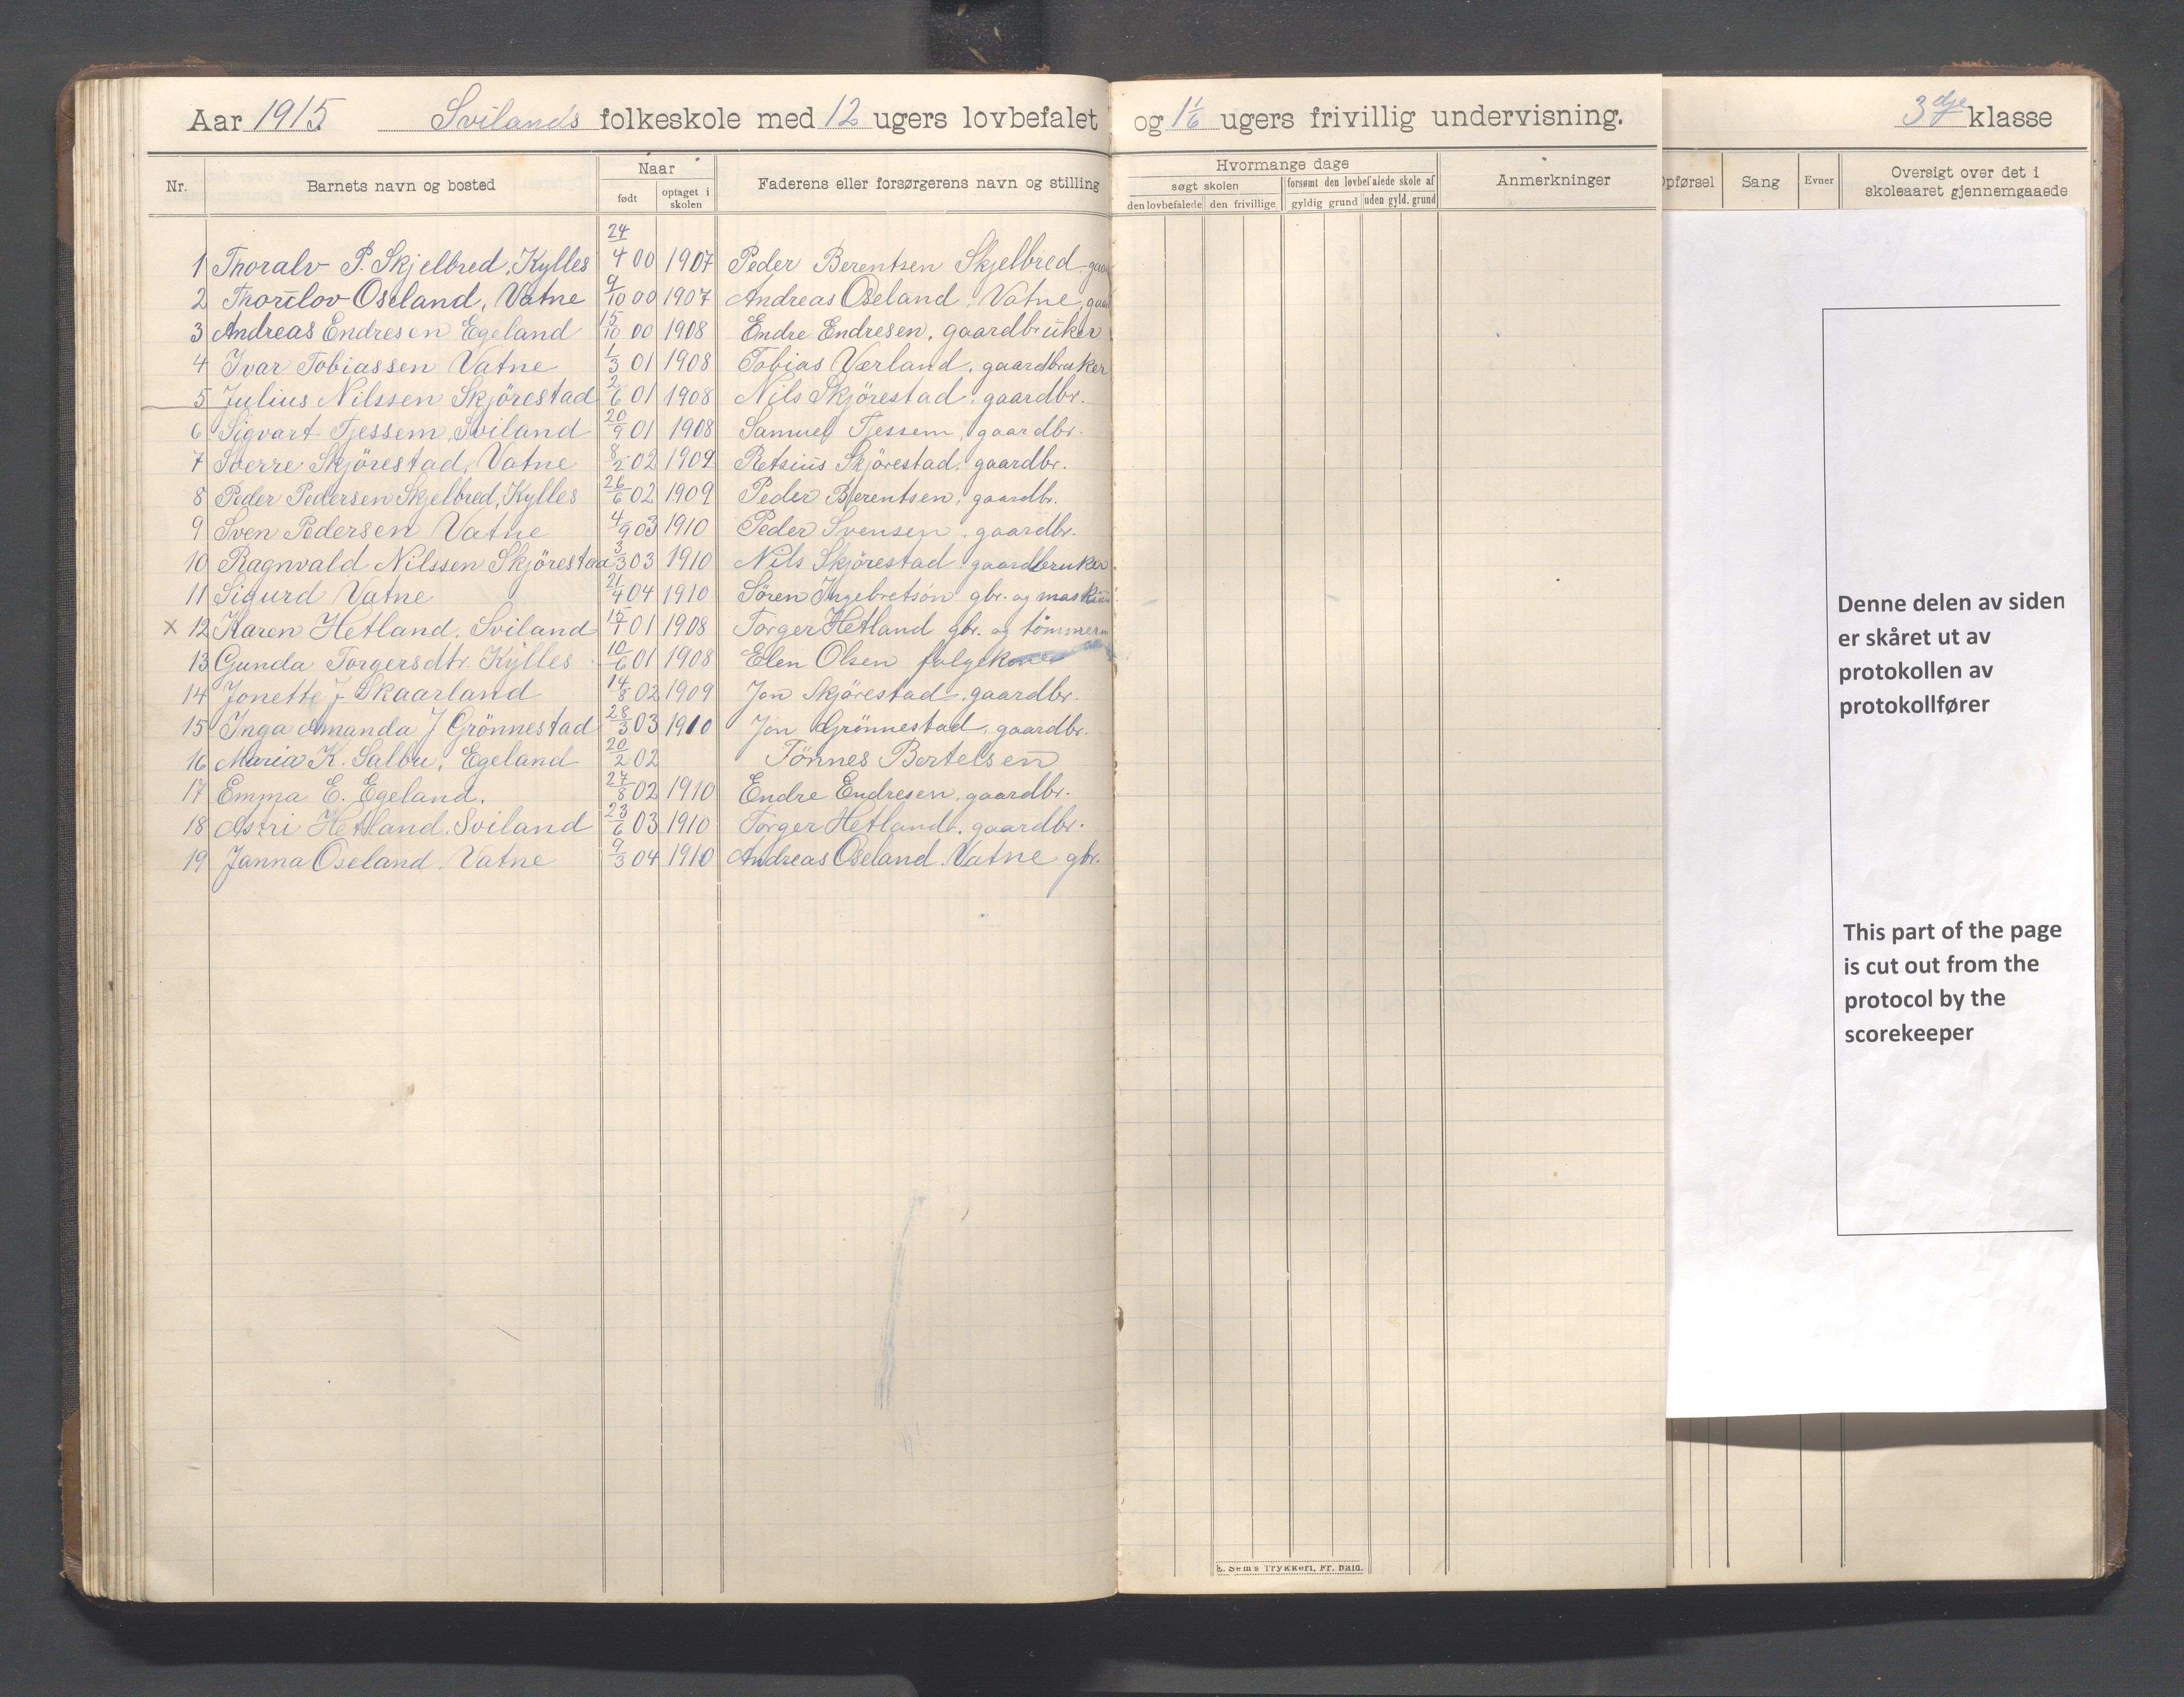 Aar 1915. Svilands folkeskole med 12 ugers lovbefalet og 1 1/6 ugers frivillig undervisning. 3dje klasse
Nr. Barnets navn og bosted Naar født optaget i skolen Faderens eller forsørgerens navn og stilling
Hvormange dage
søgt skolen forsømt den lovbefalede skole af
den lovbefalede den frivillige gyldig grund uden gyld. grund
Anmerkninger
Opførsel Sang Evner Oversigt over det i skoleaaret gjennemgaaede
1 Thoralv P. Skjelbred, Kylles 24/4 00 1907 Peder Berentsen Skjelbred, gaa
2 Thorlov Oseland, Vatne 9/10 00 1907 Andreas Oseland, Vatne, gaa
3 Andreas Endresen Egeland 15/10 00 1908 Endre Endresen, gaardbruker
4 Ivar Tobiassen Vatne 1/3 01 1908 Tobias Værland, gaardbruker
5 Julius Nilssen Skjörestad 2/6 01 1908 Nils Skjörestad, gaardbr.
6 Sigvart Tjessem, Sviland 20/9 01 1908 Samuel Tjessem, gaardbr.
7 Sverre Skjörestad, Vatne 8/2 02 1909 Retsius Skjörestad, gaardbr.
8 Peder Pedersen Skjelbred, Kylles 26/6 02 1909 Peder Berentsen, gaardbr.
9 Sven Pedersen Vatne 4/9 03 1910 Peder Svensen, gaardbr.
10 Ragnvald Nilssen Skjörestad 3/3 03 1910 Nils Skjörestad gaardbruker
11 Sigurd Vatne 21/4 04 1910 Sören Ingebretson gbr. og maskin
x 12 Karen Hetland, Sviland 15/1 01 1908 Torger Hetland gbr. og tömmerm
13 Gunda Torgersdtr. Kylles 10/6 01 1908 Elen Olsen folgekone
14 Jonette J. Skaarland 14/8 02 1909 Jon Skjörestad, gaardbr.
15 Inga Amanda J Grönnestad 28/3 03 1910 Jon Grönnestad, gaardbr.
16 Maria K. Salbu, Egeland 20/2 02 Tönnes Bertelsen
17 Emma E. Egeland. 27/8 02 1910 Endre Endresen, gaardbr.
18 Astri Hetland. Sviland 23/6 03 1910 Torger Hetland, gaardbr.
19 Janna Oseland. Vatne 9/3 04 1910 Andreas Oseland. Vatne gbr.
Denne delen av siden
er skåret ut av
protokollen av
protokollfører
This part of the page
is cut out from the
protocol by the
scorekeeper
E. Sem's Trykkeri, Fr. hald.